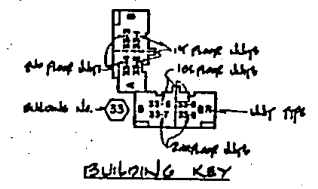 B
1ST FLOOR UNITS
2ND FLOOR UNITS
1ST FLOOR UNITS
A
BUILDING NO.
33
B
33-6
33-8
BR
UNIT TYPE
33-7
33-9
2ND FLOOR UNITS
BUILDING KEY